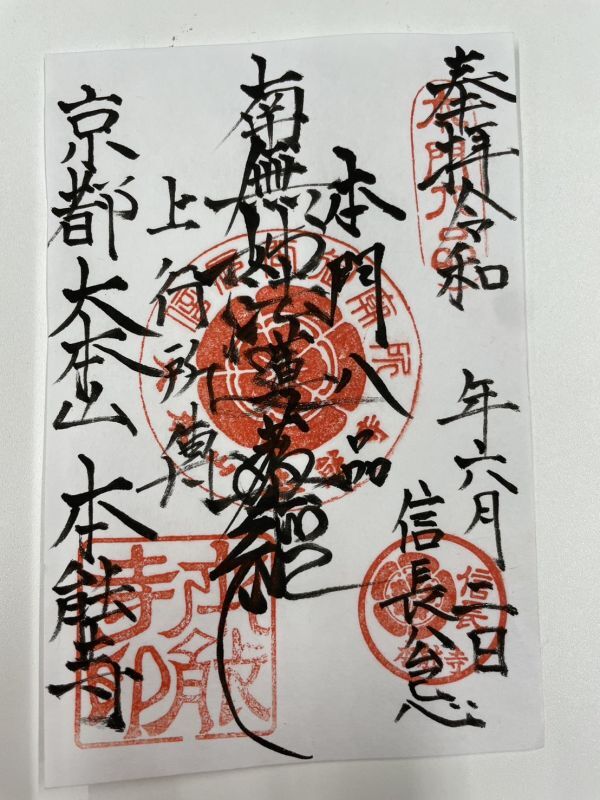 奉拝 令和 年六月二日
信長公忌
本門八品
南無妙法蓮華経
上行所傳
京都 大本山 本能寺
信長
本能寺
本能寺印